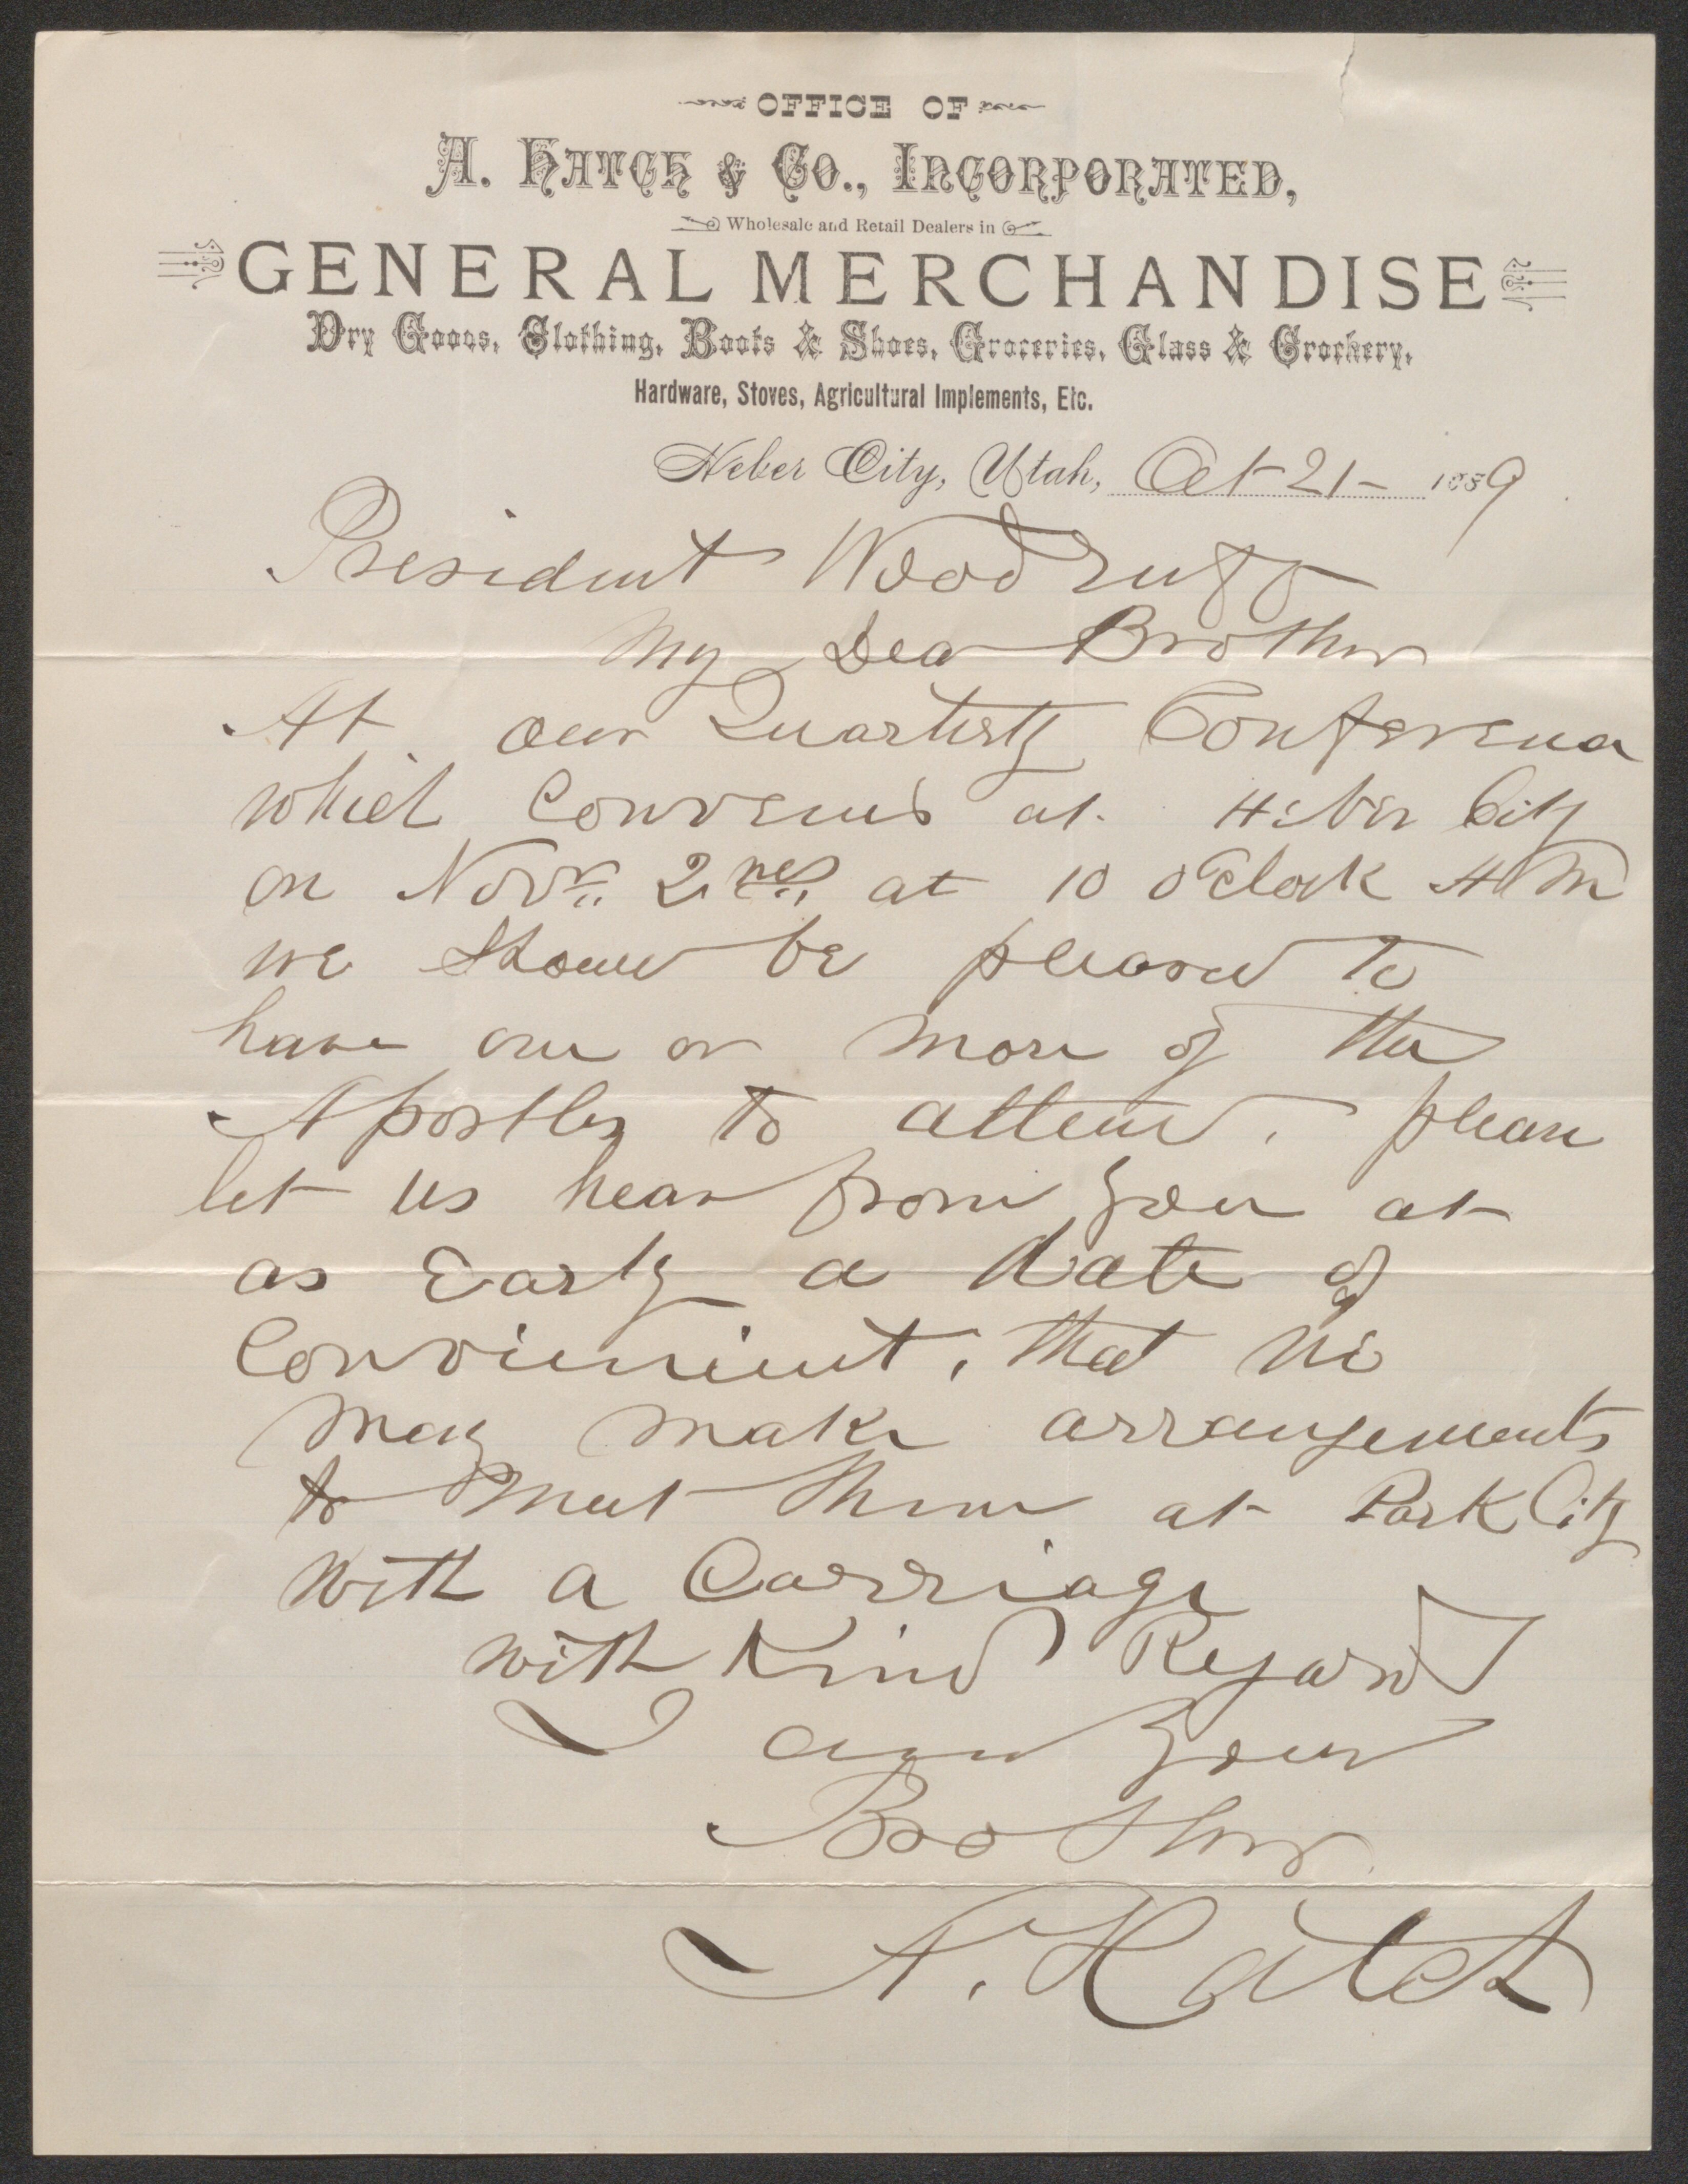 OFFICE OF
A. HATCH & CO., INCORPORATED,
Wholesale and Retail Dealers in
GENERAL MERCHANDISE
Dry Goods, Clothing, Boots & Shoes, Groceries, Glass & Crockery,
Hardware, Stoves, Agricultural Implements, Etc.
Heber City, Utah, Oct 21- 1889
President Woodruff
My Dear Brother
At our Quarterly Conference
which Convenes at Heber City
on Novr. 2nd, at 10 o'Clock AM
we should be pleased to
have one or more of the
Apostles to attend. please
let us hear from you at
as Early a date as
Convienient, that we
may make arrangements
to meet them at Park City
with a Carriage
with Kind Regards
I am your
Brother
A. Hatch